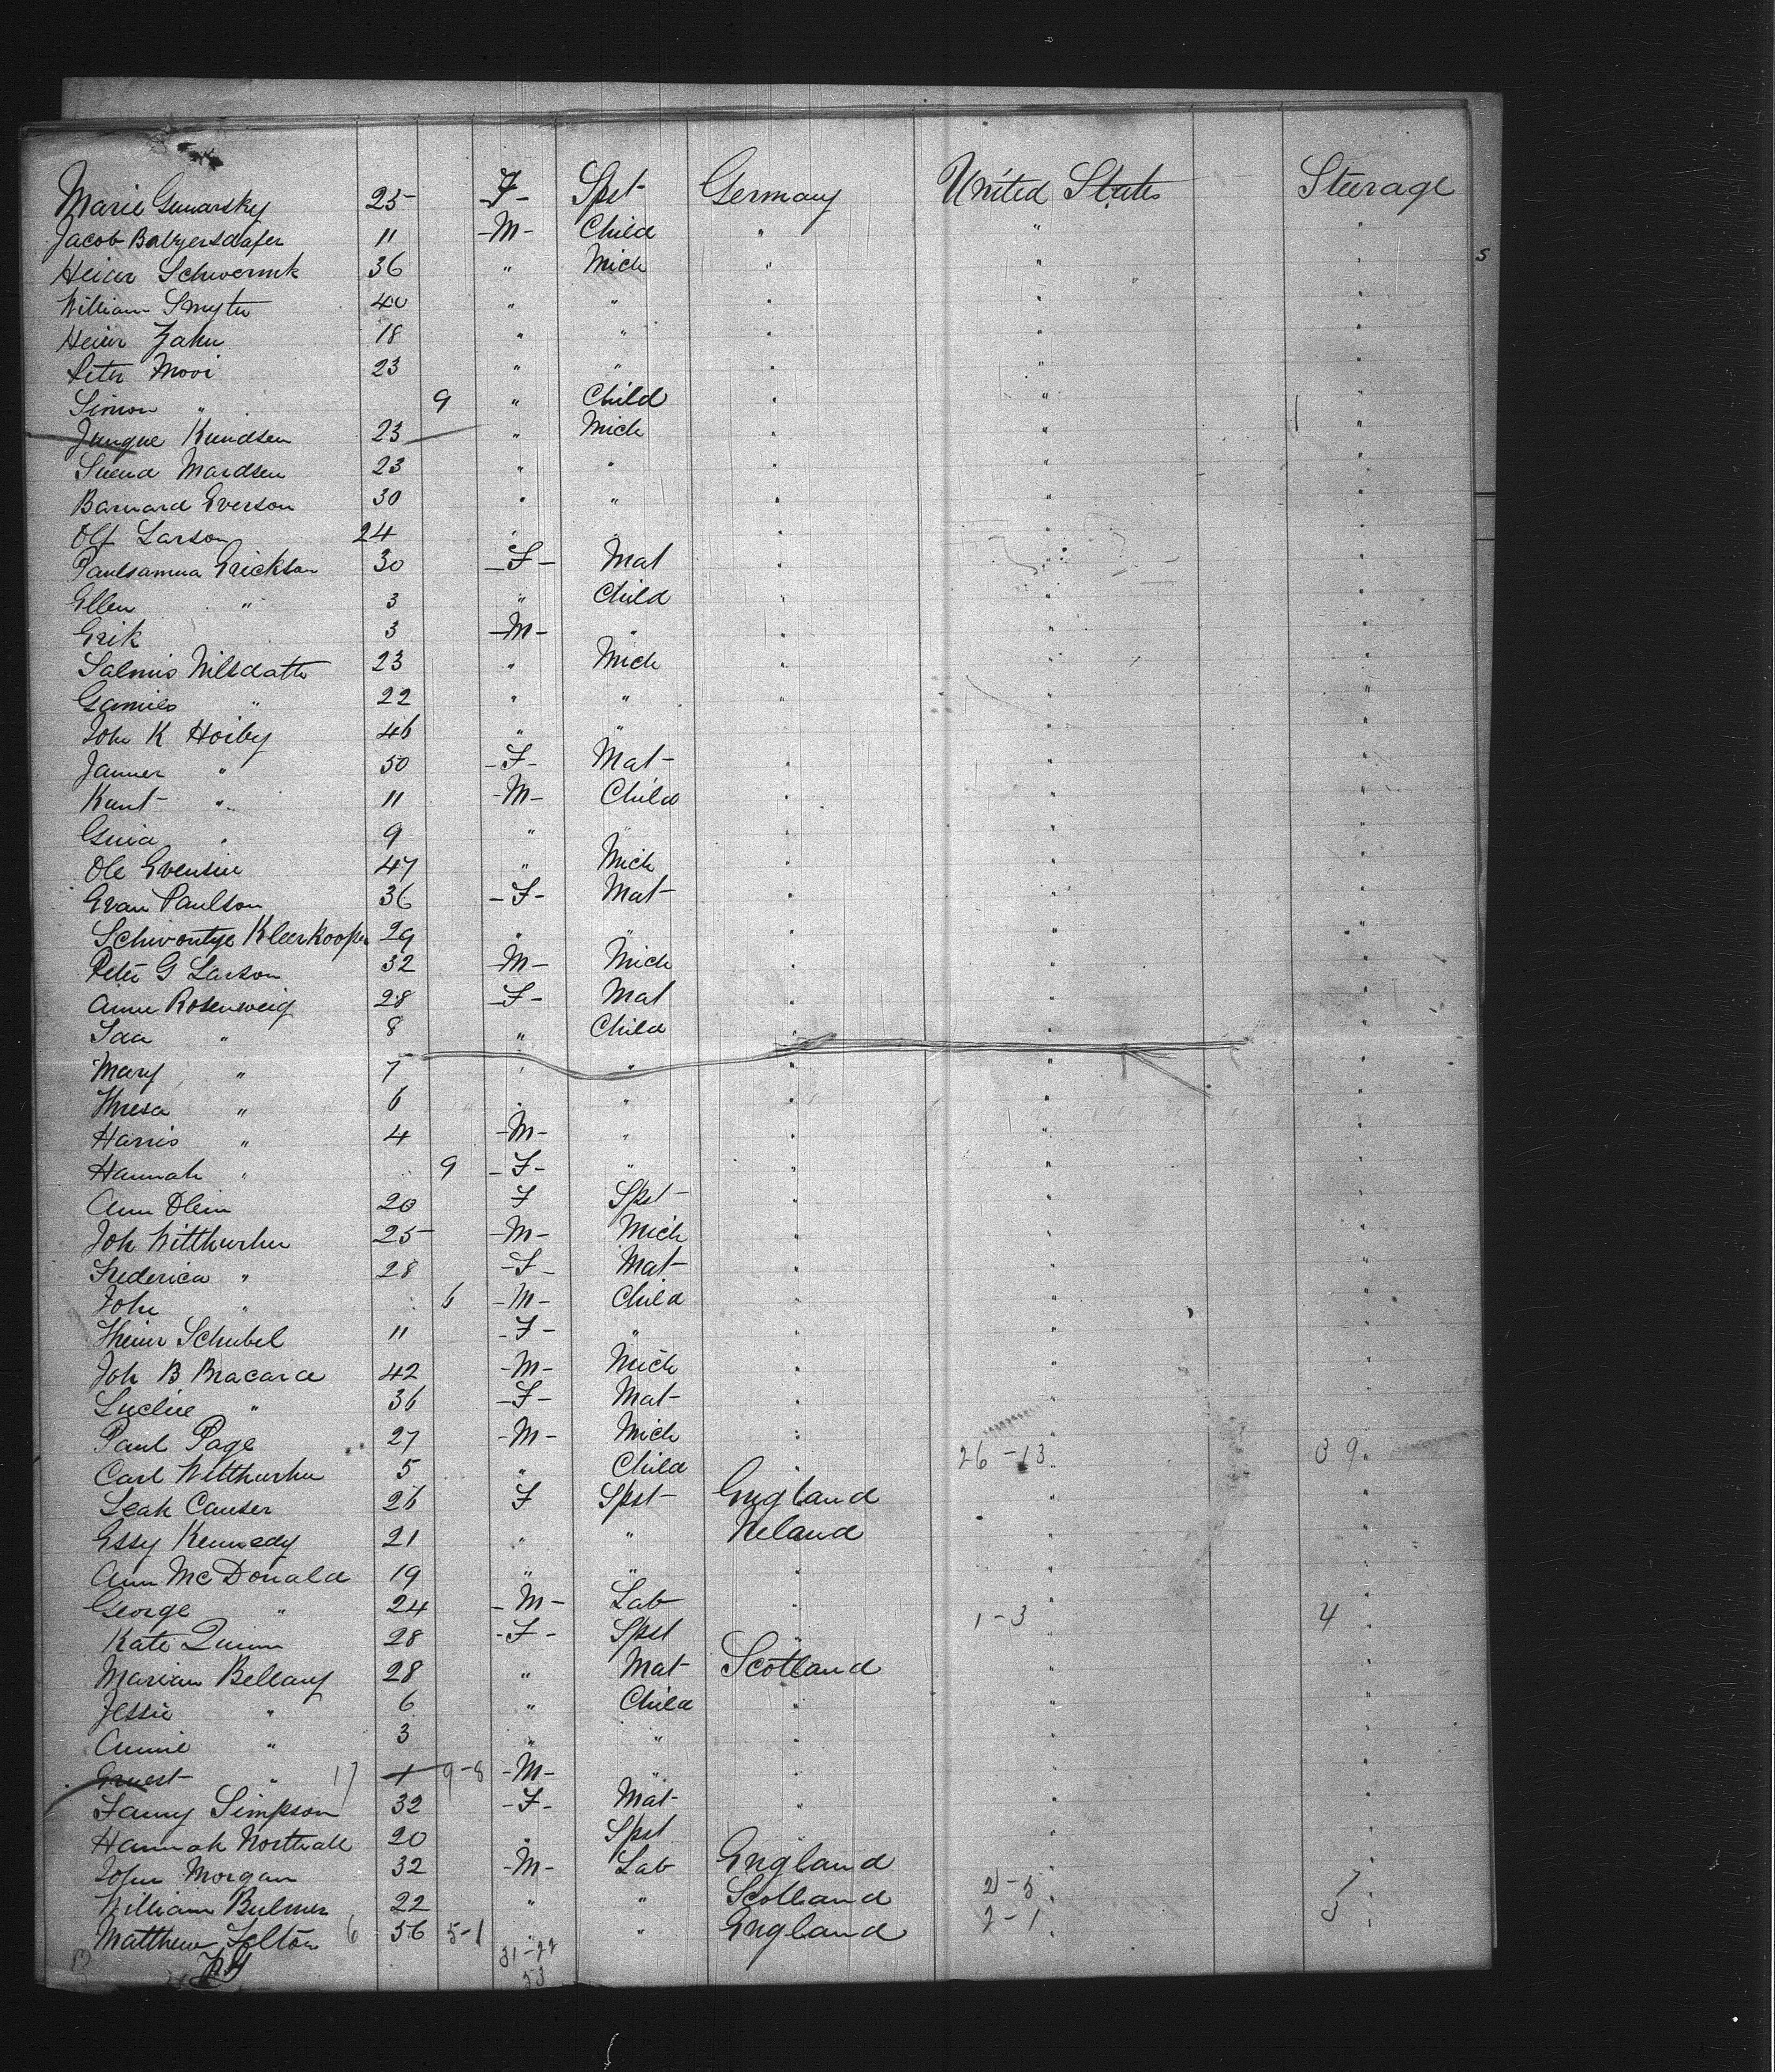 Marie Gunarsky 25 F Spst Germany United States Steerage
Jacob Balzersdafer 11 M Child " " "
Heinr Schwernk 36 " Mich " " "
William Smyth 40 " " " " "
Heinr Zahn 18 " " " " "
Peter Movi 23 " " " " "
Simon " 9 " Child " " "
Jungue Kundsen 23 " Mich " " 1 "
Suend Mardsen 23 " " " " "
Barnard Everson 30 " " " " "
Olf Larson 24 " " " " "
Paulsamua Erickson 30 F Mat " " "
Ellen " 3 " Child " " "
Erik 3 M " " " "
Salmis Nilsdatte 23 " Mich " " "
Gamies " 22 " " " " "
John K Hoiby 46 " " " " "
Janner " 50 F Mat " " "
Kunt " 11 M Child " " "
Guia " 9 " " " " "
Ole Evensin 47 " Mich " " "
Evan Paulson 36 F Mat " " "
Schwontye Kleerkoope 29 " " " " "
Peter G Larson 32 M Mich " " "
Anne Rosenweig 28 F Mat " " "
Ida " 8 " Child " " "
Mary " 7 " " " " "
Thresa " 6 " " " " "
Harris " 4 M " " " "
Hannah " 9 F " " " "
Ann Olein 20 F Spst " " "
Joh Witthurhn 25 M Mich " " "
Frederica " 28 F Mat " " "
John " 6 M Child " " "
Heinr Schubel 11 F " " " "
Joh B Bracard 42 M Mich " " "
Lucline " 36 F Mat " " "
Paul Page 27 M Mich " " "
Carl Witthurhn 5 " Child " 26-13 " 39 "
Leah Causer 26 F Spst England " "
Essy Kennedy 21 " " Ireland " "
Ann McDonald 19 " " " " "
George " 24 M Lab " " "
Kate Quinn 28 F Spst " 1-3 " 4 "
Marian Bellany 28 " Mat Scotland " "
Jessie " 6 " Child " " "
Annie " 3 " " " " "
Ernest " 17 1 9-8 M " " " "
Fanny Simpson 32 F Mat " " "
Hannah Northall 20 " Spst " " "
John Morgan 32 M Lab England " "
William Bulmer 22 " " Scotland 2-5 " 7 "
Matthew Felton 6 56 5-1 " " England 2-1 " 3 "
31-22
53